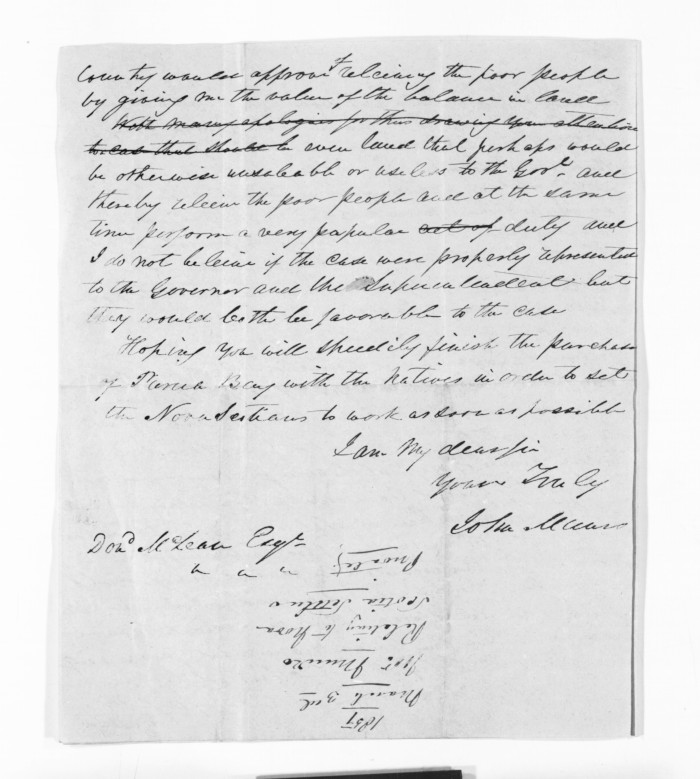 Country would approve of releiving the poor people
by giving me the value of the balance in land
With many apologies for thus drawing your attention
to case that should be even land that perhaps would
be otherwise unsaleable or useless to the Govt. and
thereby releive the poor people and at the same
time perform a very popular act of duty and
I do not beleive if the case were properly represented
to the Governor and the Superintendent but
they would both be favorable to the case
Hoping you will speedily finish the purchase
of Parua Bay with the Natives in order to set
the Nova Scotians to work as soon as possible
I am My dear Sir
Yours Truly
John Munro
Dond. McLean Esqr.
" " "
1857
March 3rd
Jno. Munro
Relating to Nova
Scotia Settlers
Private